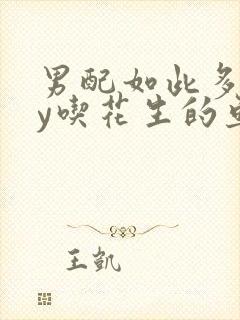 男配如此多
y喫花生的
王凯